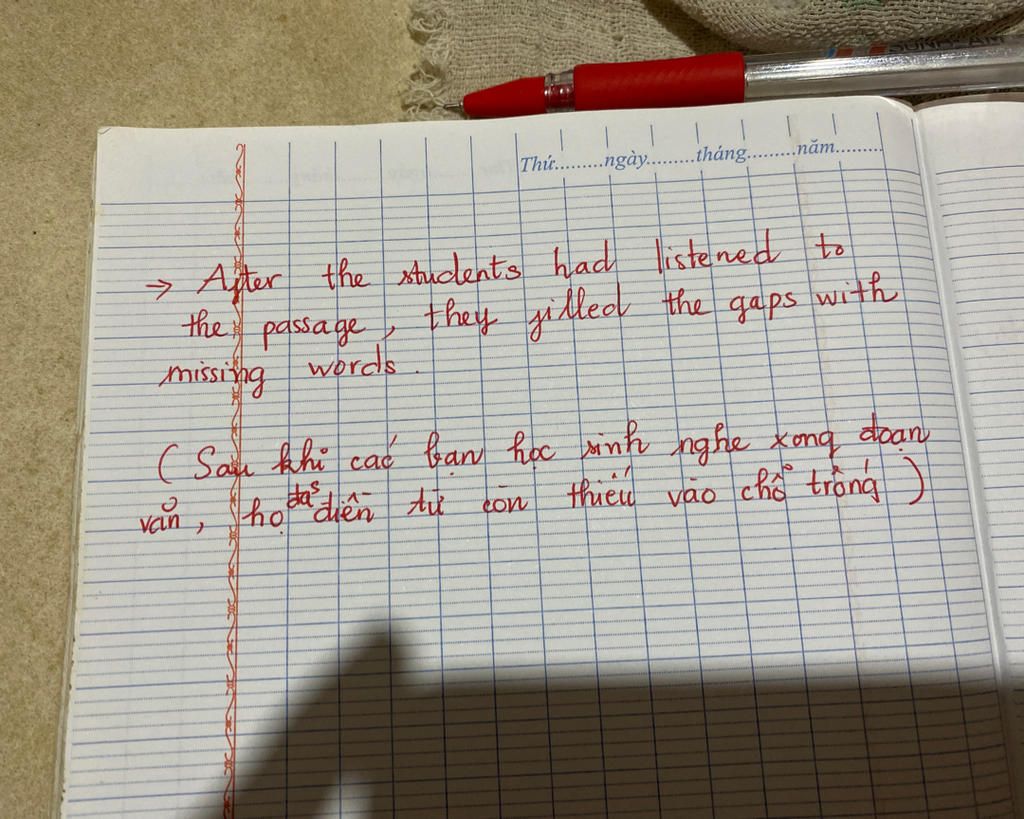 Thứ.........ngày.........tháng.........năm.........
→ After the students had listened to
the passage, they filled the gaps with
missing words.
(Sau khi các bạn học sinh nghe xong đoạn
văn, họ đã điền từ còn thiếu vào chỗ trống)